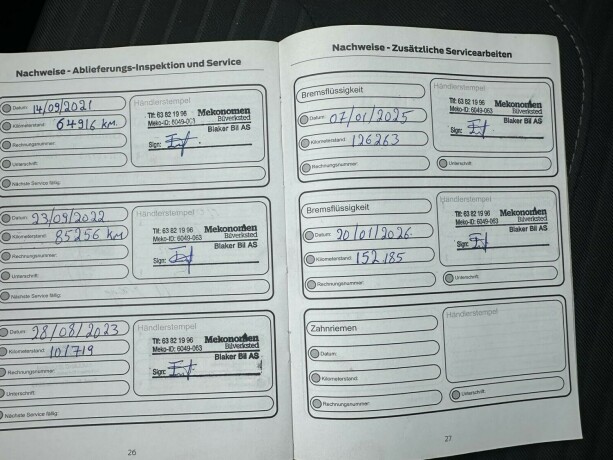 Nachweise - Ablieferungs-Inspektion und Service
Datum: 14/09/2021
Kilometerstand: 64916 KM.
Rechnungsnummer:
Unterschrift:
Nächste Service fällig:
Händlerstempel
Tlf: 63 82 19 96 Mekonomen
Meko-ID: 6049-063 Bilverksted
Blaker Bil AS
Sign:
Datum: 23/09/2022
Kilometerstand: 85256 KM
Rechnungsnummer:
Unterschrift:
Nächste Service fällig:
Händlerstempel
Tlf: 63 82 19 96 Mekonomen
Meko-ID: 6049-063 Bilverksted
Blaker Bil AS
Sign:
Datum: 28/08/2023
Kilometerstand: 101719
Rechnungsnummer:
Unterschrift:
Nächste Service fällig:
Händlerstempel
Tlf: 63 82 19 96 Mekonomen
Meko-ID: 6049-063 Bilverksted
Blaker Bil AS
Sign:
26
Nachweise - Zusätzliche Servicearbeiten
Bremsflüssigkeit
Datum: 07/01/2025
Kilometerstand: 126263
Rechnungsnummer:
Händlerstempel
Tlf: 63 82 19 96 Mekonomen
Meko-ID: 6049-063 Bilverksted
Blaker Bil AS
Sign:
Unterschrift:
Bremsflüssigkeit
Datum: 20/01/2026.
Kilometerstand: 152.185
Rechnungsnummer:
Händlerstempel
Tlf: 63 82 19 96 Mekonomen
Meko-ID: 6049-063 Bilverksted
Blaker Bil AS
Sign:
Unterschrift:
Zahnriemen
Datum:
Kilometerstand:
Rechnungsnummer:
Händlerstempel
Unterschrift:
27